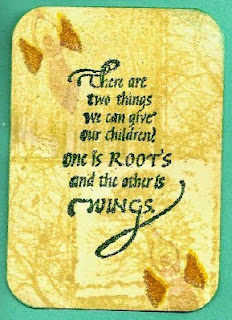 There are
two things
we can give
our children?
one is ROOT'S
and the other is
WINGS.